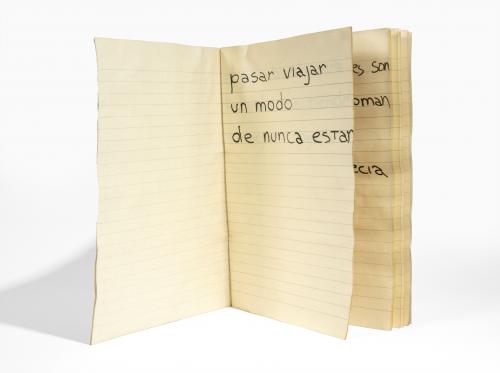 pasar viajar
un modo
de nunca estar
es son
oman
ecia